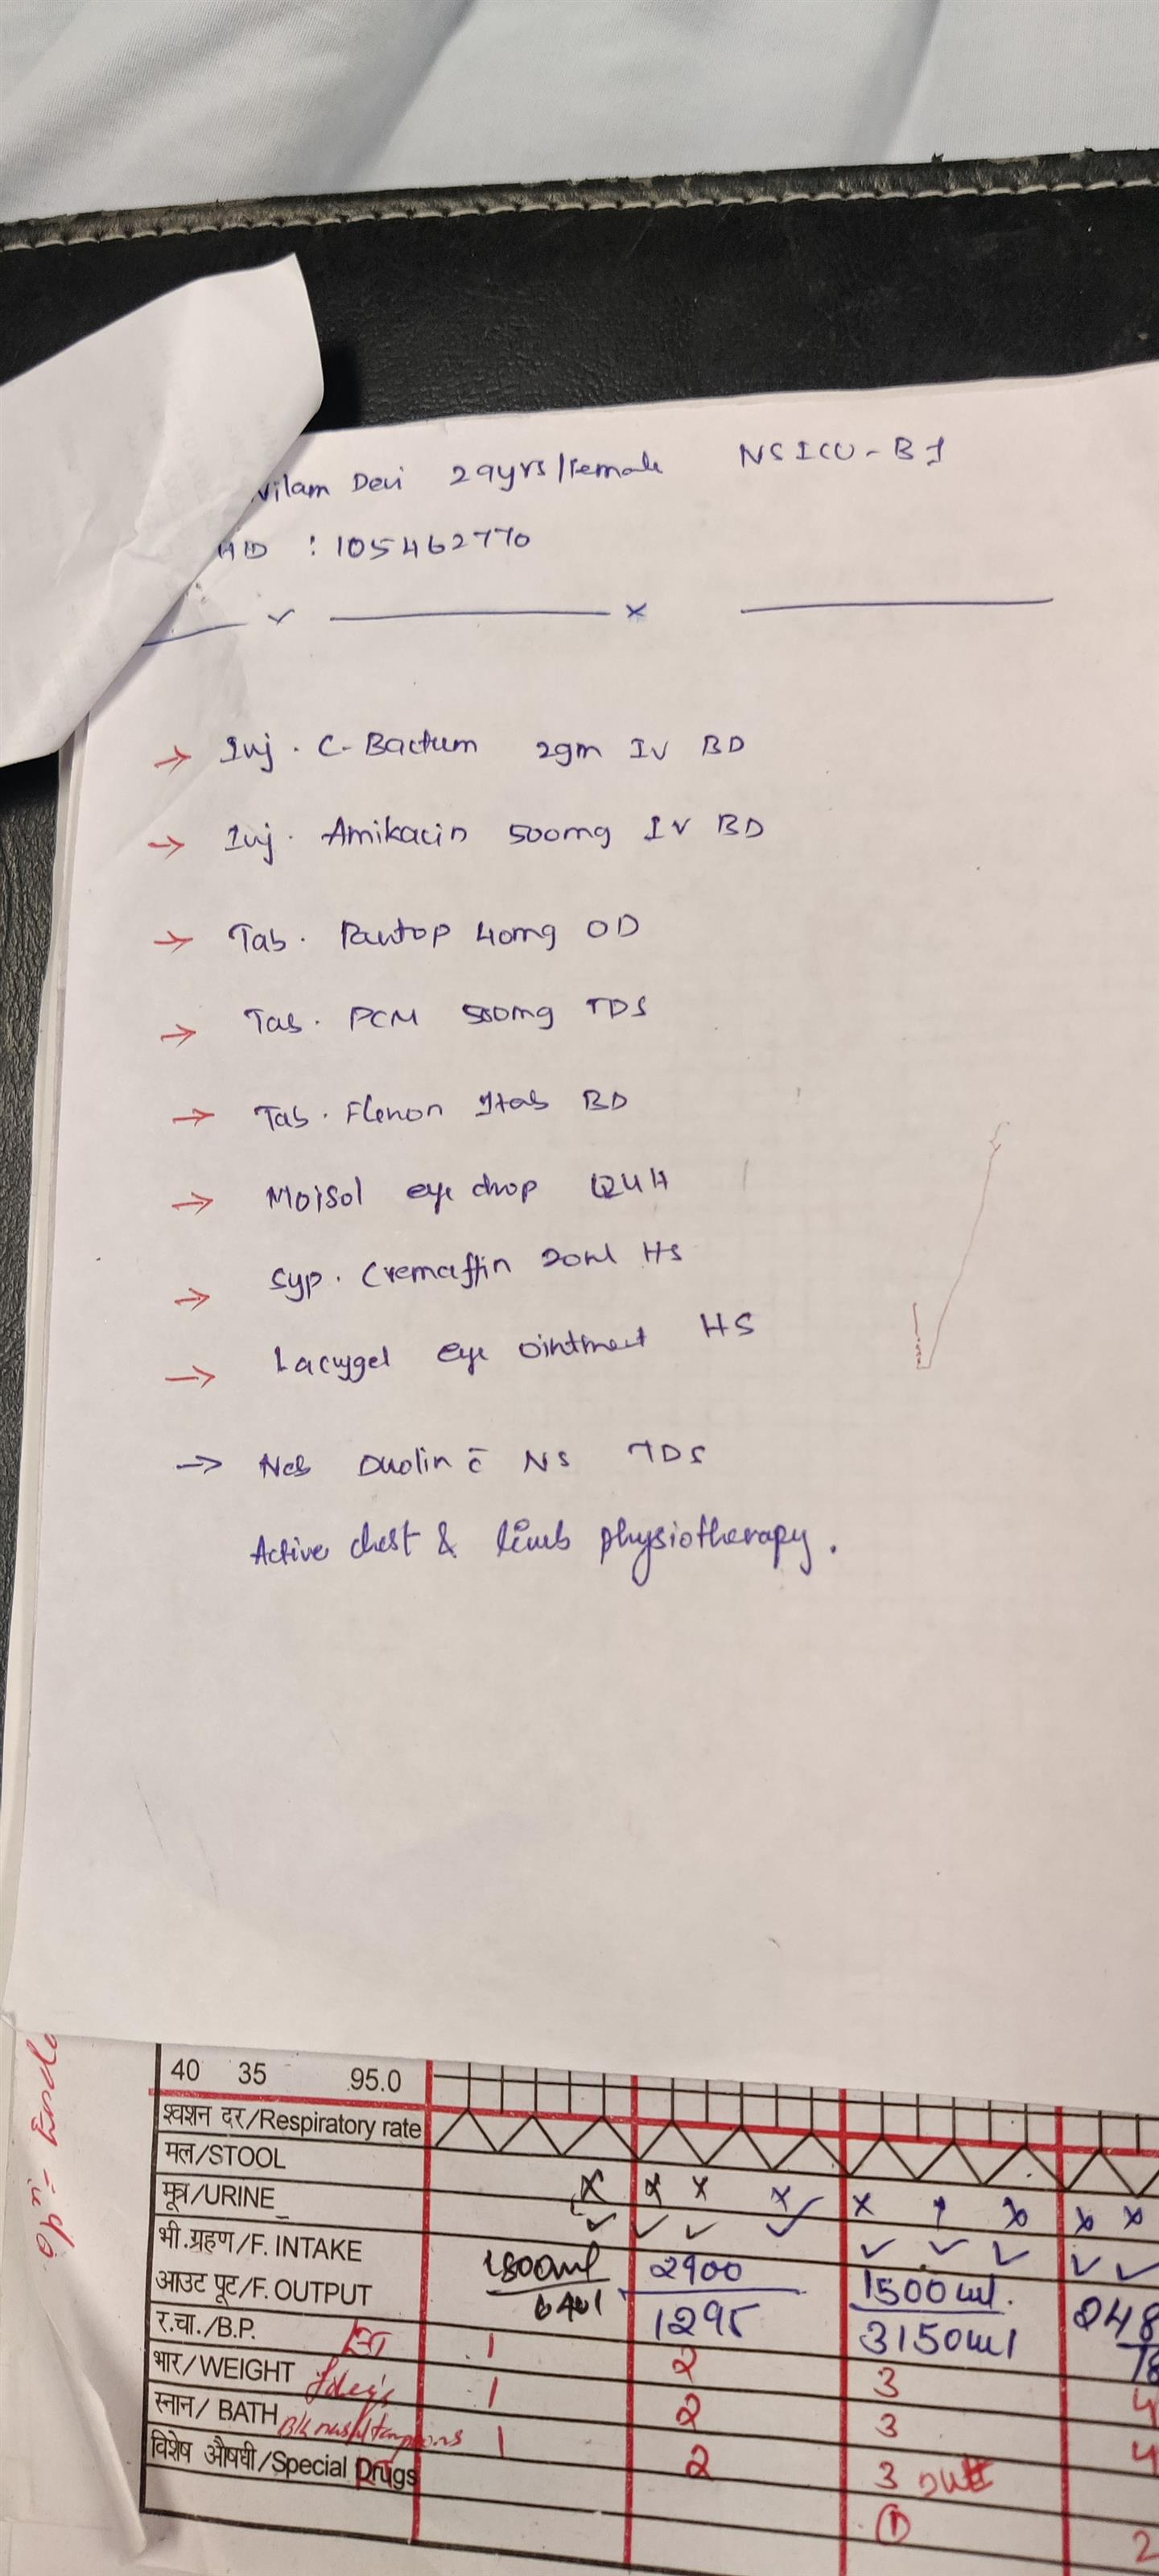 Nilam Devi 29yrs/Female NSICU-B1
HD : 105462770
→ Inj. C-Bactum 2gm IV BD
→ Inj. Amikacin 500mg IV BD
→ Tab. Pantop 40mg OD
→ Tab. PCM 550mg TDS
→ Tab. Flenon 1tab BD
→ Moisol eye drop Q4H
→ Syp. Cremaffin 20ml HS
→ Lacygel eye ointment HS
→ Neb Duolin c̄ NS TDS
Active chest & limb physiotherapy.
40 35 95.0
श्वशन दर/Respiratory rate
मल/STOOL x x x x x x x x
मूत्र/URINE
भी.ग्रहण/F. INTAKE 1800ml 2900 1500ml.
आउट पूट/F. OUTPUT 1295 3150ml
र.चा./B.P. 1 2 3 4
भार/WEIGHT 1 2 3 4
स्नान/ BATH 1 2 3
विशेष औषधी/Special Drugs
① 2